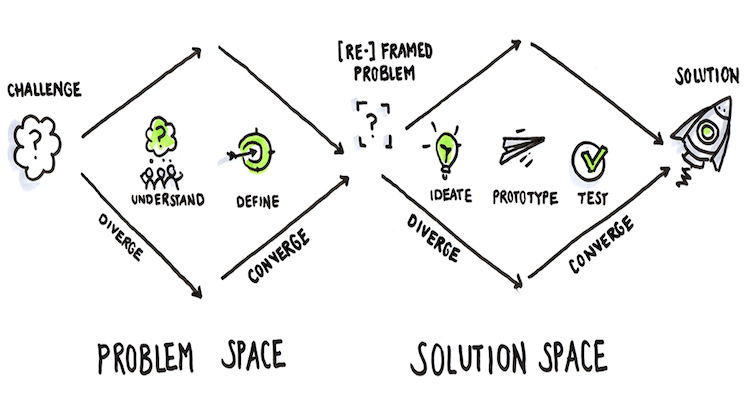 CHALLENGE
?
?
UNDERSTAND
DEFINE
DIVERGE
CONVERGE
[RE-] FRAMED
PROBLEM
?
IDEATE
PROTOTYPE
TEST
DIVERGE
CONVERGE
SOLUTION
PROBLEM SPACE
SOLUTION SPACE